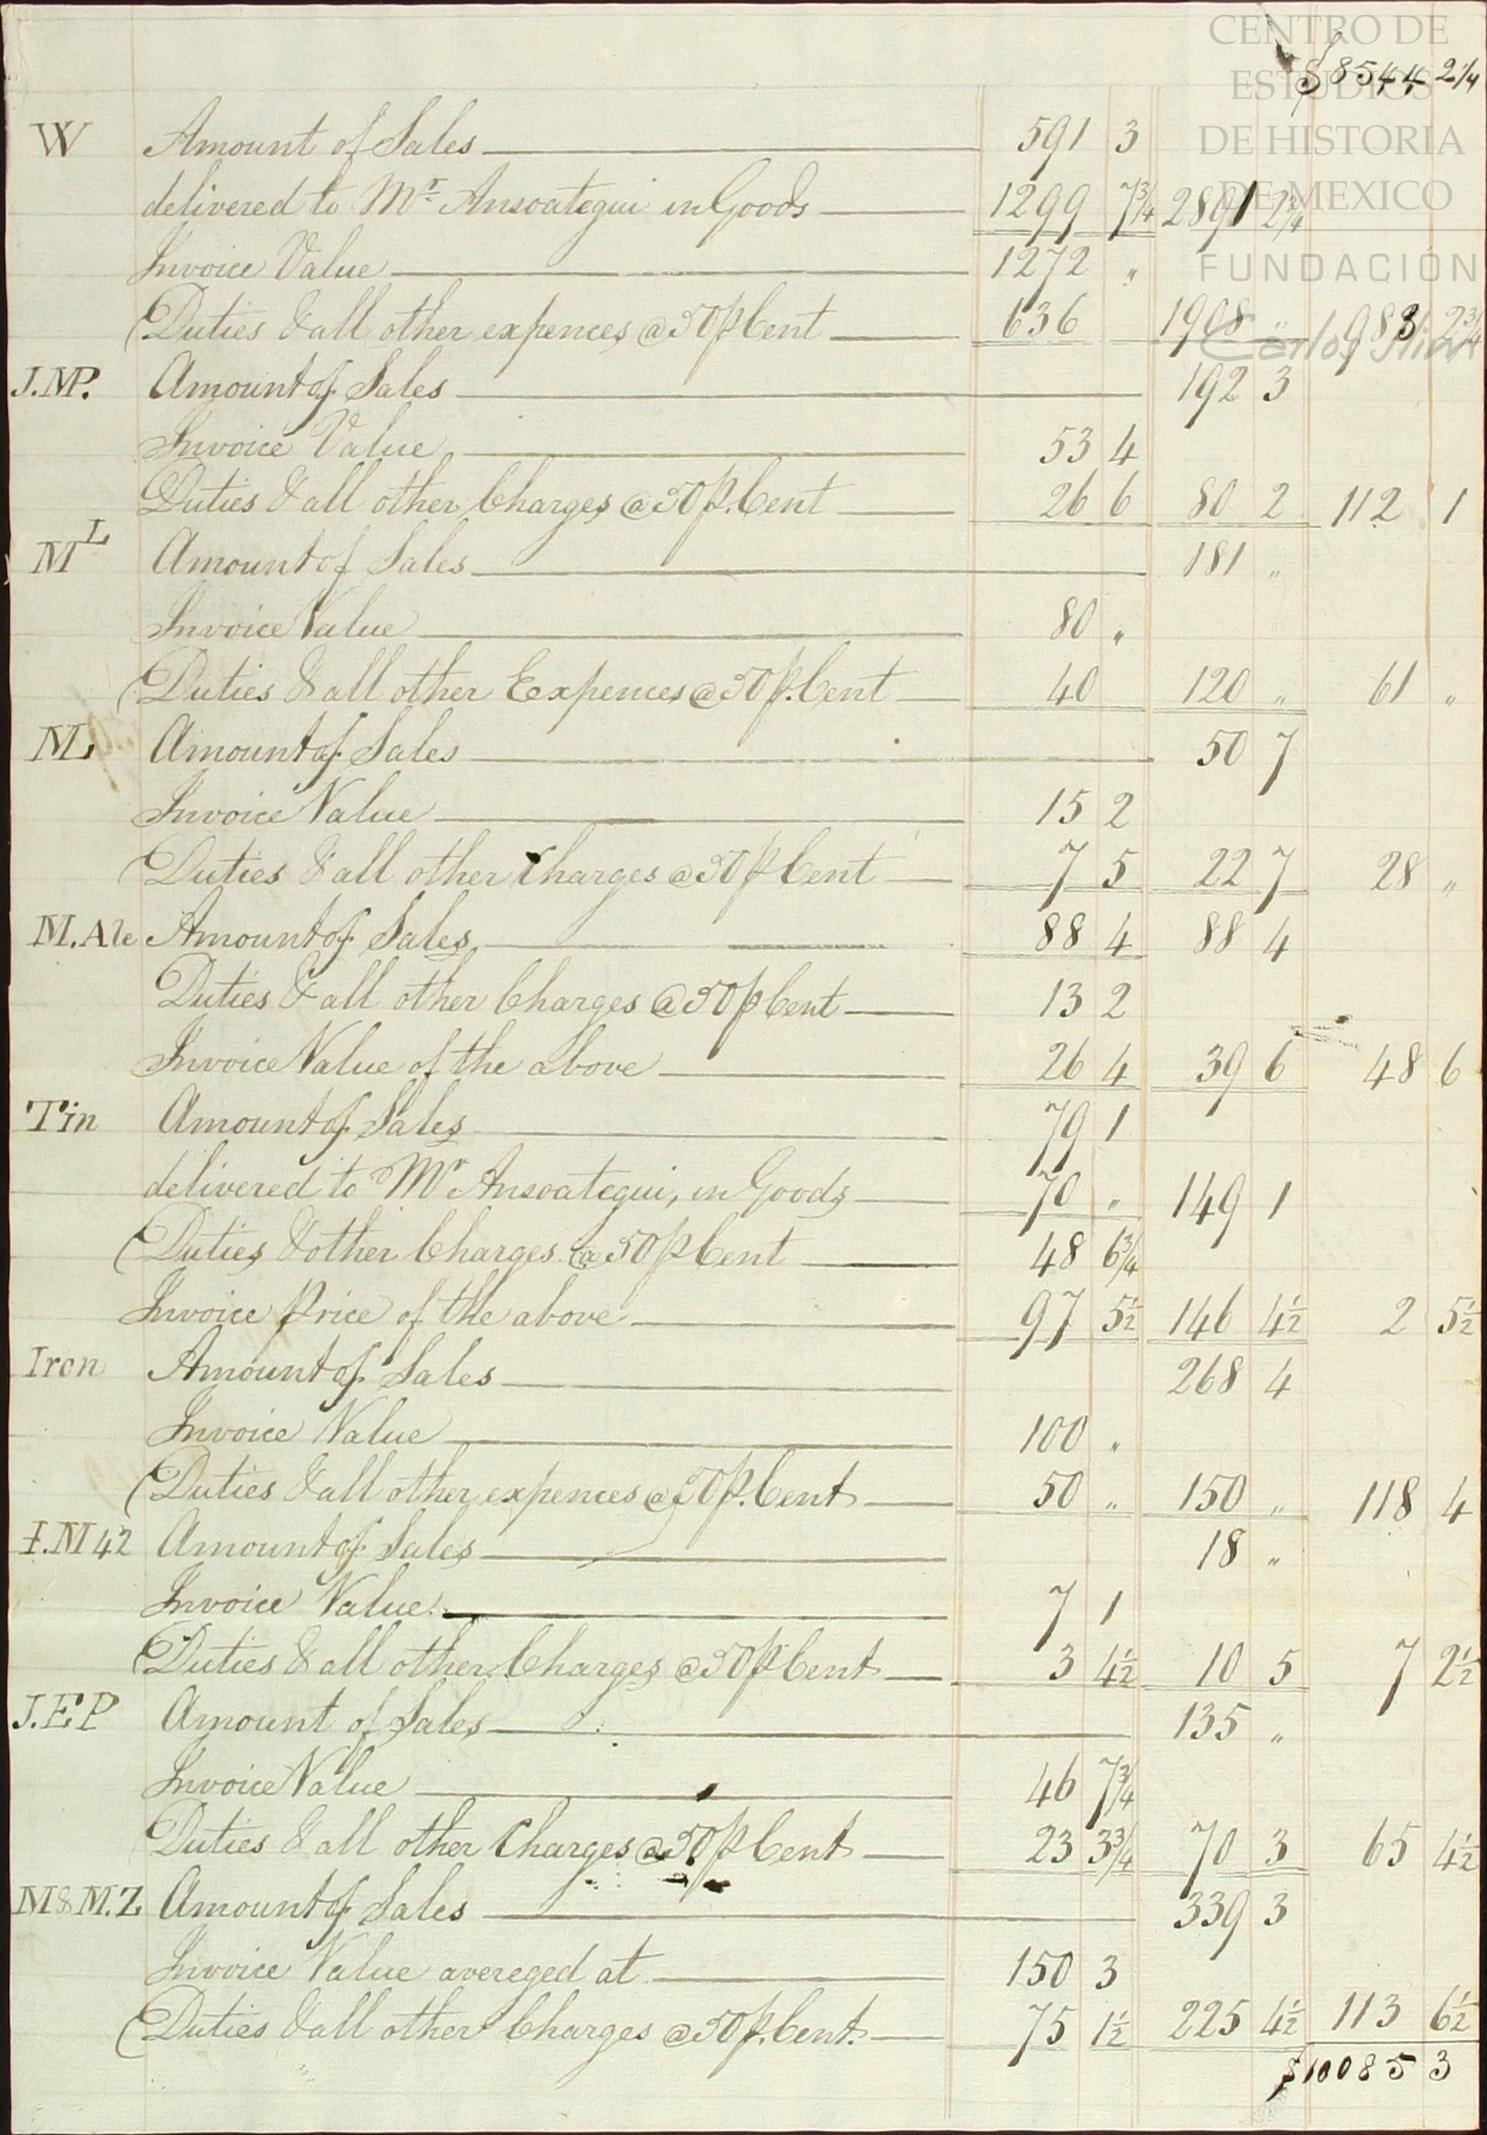 CENTRO DE
$8544 2¼
ESTUDIOS
W Amount of Sales 591 3
DE HISTORIA
delivered to Mr. Ansoategui in Goods 1299 7¾ 2891 2¾
DE MEXICO
Invoice Value 1272 "
FUNDACIÓN
Duties & all other expences @ 50 p Cent 636 1908 " 983 2¾
Carlos Slim
J.MP. Amount of Sales 192 3
Invoice Value 53 4
Duties & all other Charges @ 50 p. Cent 26 6 80 2 112 1
ML Amount of Sales 181 "
Invoice Value 80 "
Duties & all other Expences @ 50 p. Cent 40 120 " 61 "
ML Amount of Sales 50 7
Invoice Value 15 2
Duties & all other Charges @ 50 p Cent 7 5 22 7 28 "
M.Ale Amount of Sales 88 4 88 4
Duties & all other Charges @ 50 p Cent 13 2
Invoice Value of the above 26 4 39 6 48 6
Tin Amount of Sales 79 1
delivered to Mr Ansoategui, in Goods 70 " 149 1
Duties & other Charges @ 50 p Cent 48 6¾
Invoice Price of the above 97 5½ 146 4½ 2 5½
Iron Amount of Sales 268 4
Invoice Value 100 "
Duties & all other expences @ 50 p. Cent 50 " 150 " 118 4
I.M 42 Amount of Sales 18 "
Invoice Value 7 1
Duties & all other Charges @ 50 p Cent 3 4½ 10 5 7 2½
J.E.P Amount of Sales 135 "
Invoice Value 46 7¾
Duties & all other Charges @ 50 p Cent 23 3¾ 70 3 65 4½
M&M.Z Amount of Sales 339 3
Invoice Value avereged at 150 3
Duties & all other Charges @ 50 p. Cent. 75 1½ 225 4½ 113 6½
$10085 3